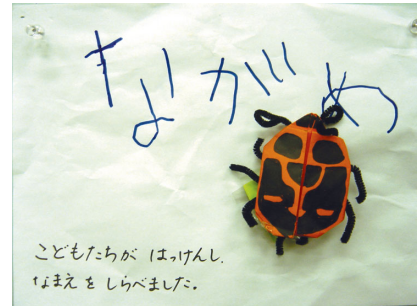 ながめ
こどもたちが はっけんし、
なまえを しらべました。